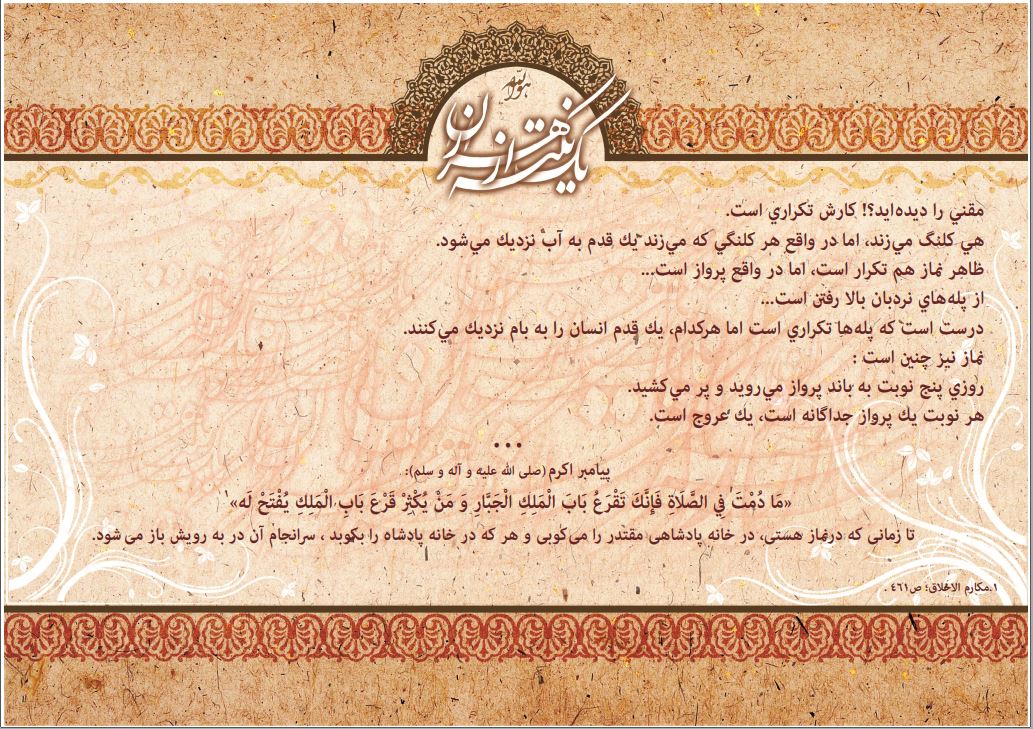 هو الله
یک نکته از هزاران
مقني را ديده‌ايد؟! كارش تكراري است.
هي كلنگ مي‌زند، اما در واقع هر كلنگي كه مي‌زند يك قدم به آب نزديك مي‌شود.
ظاهر نماز هم تكرار است، اما در واقع پرواز است...
از پله‌هاي نردبان بالا رفتن است...
درست است كه پله‌ها تكراري است اما هركدام، يك قدم انسان را به بام نزديك مي‌كنند.
نماز نيز چنين است :
روزي پنج نوبت به باند پرواز مي‌رويد و پر مي‌كشيد.
هر نوبت يك پرواز جداگانه است، يك عروج است.
...
پیامبر اکرم (صلی الله علیه و آله و سلم):
«مَا دُمْتَ فِي الصَّلَاةِ فَإِنَّكَ تَقْرَعُ بَابَ الْمَلِكِ الْجَبَّارِ وَ مَنْ يُكْثِرْ قَرْعَ بَابِ الْمَلِكِ يُفْتَحْ لَه»
تا زمانی که درنماز هستی، در خانه پادشاهی مقتدر را می‌کوبی و هر که در خانه پادشاه را بکوبد ، سرانجام آن در به رویش باز می شود.
١.مكارم الاخلاق؛ ص٤٦١ .